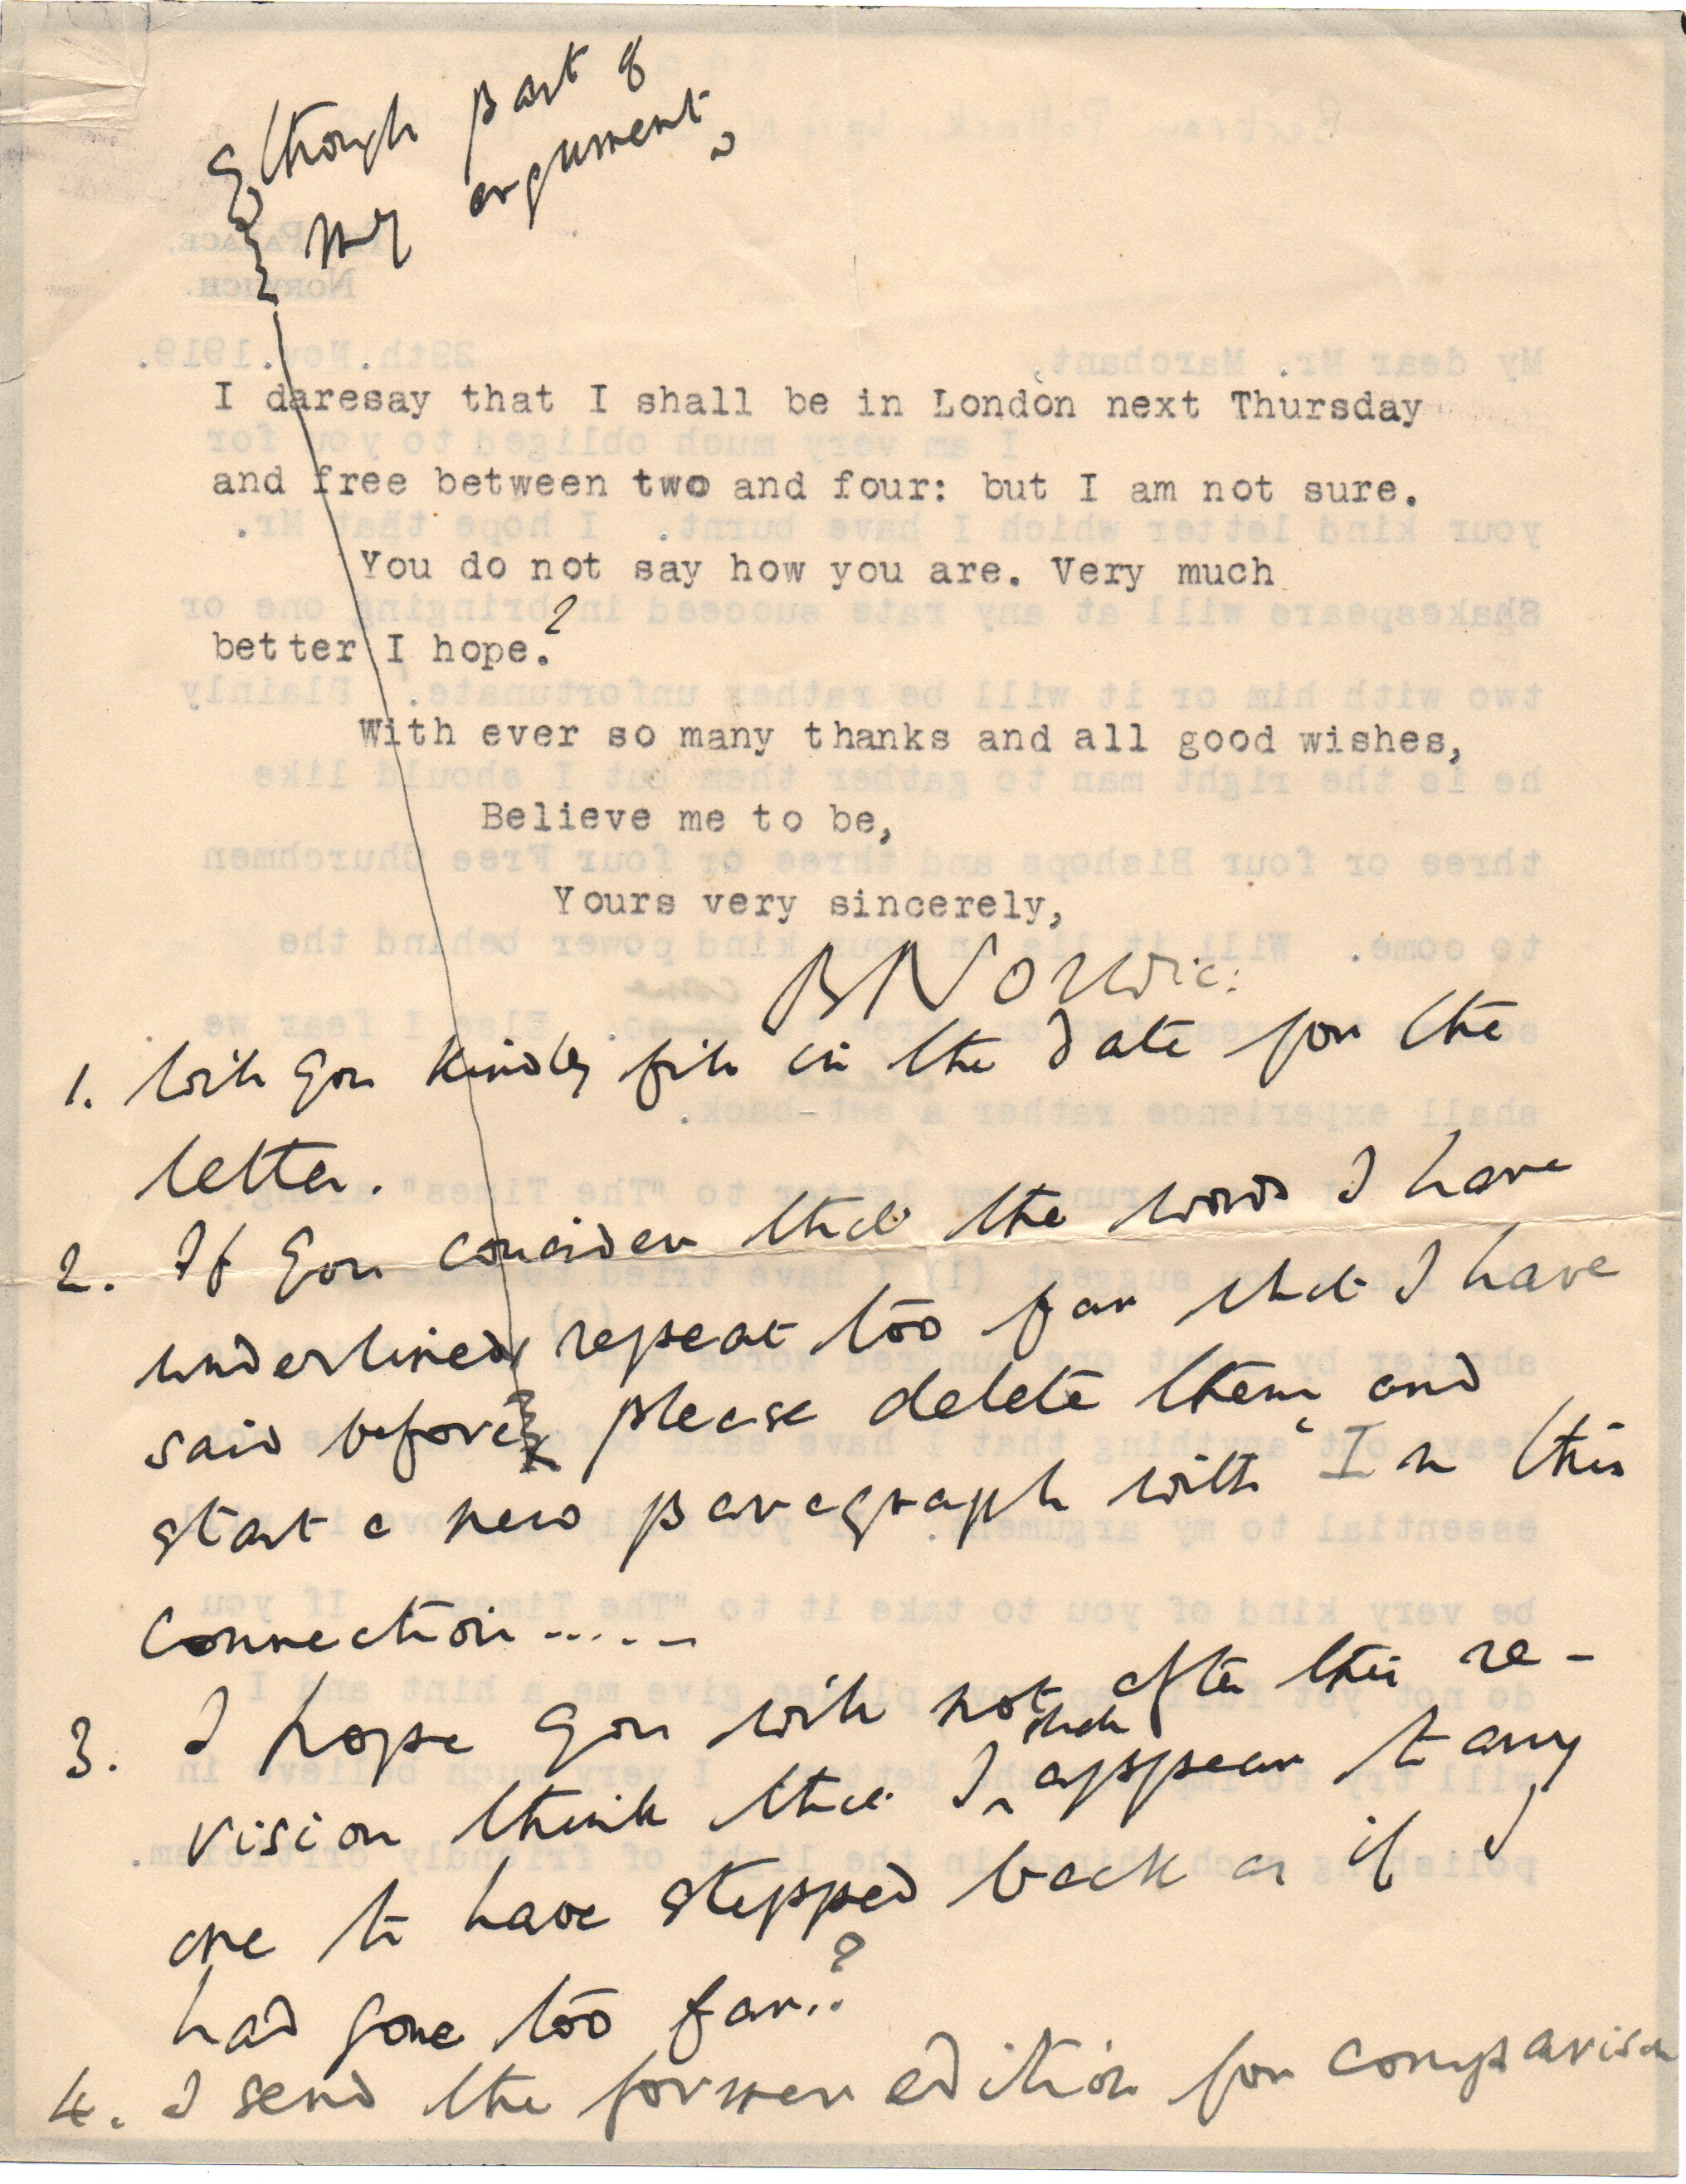 although part of
my argument,
I daresay that I shall be in London next Thursday
and free between two and four: but I am not sure.
You do not say how you are. Very much
better I hope.?
With ever so many thanks and all good wishes,
Believe me to be,
Yours very sincerely,
B Norvic:
1. Will you kindly fill in the date for the
letter.
2. If you consider that the words I have
underlined repeat too far that I have
said before please delete them and
start a new paragraph with "In this
connection.....
3. I hope you will not after this re-
vision think that I shall appear to any
one to have stepped back as if I
had gone too far..?
4. I send the former edition for comparison